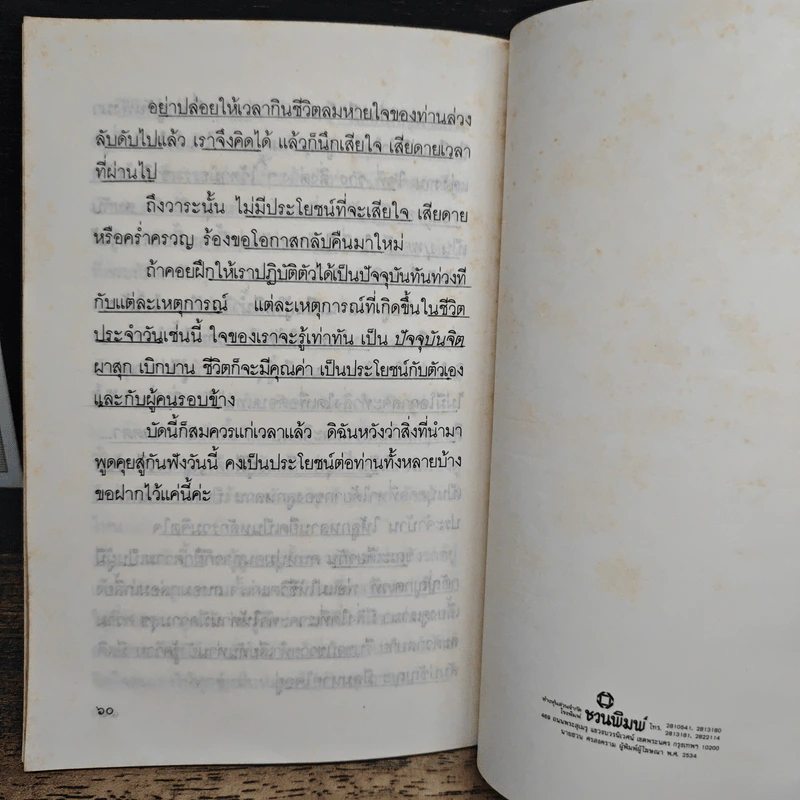 อย่าปล่อยให้เวลากินชีวิตลมหายใจของท่านล่วง
ลับดับไปแล้ว เราจึงคิดได้ แล้วก็นึกเสียใจ เสียดายเวลา
ที่ผ่านไป
ถึงวาระนั้น ไม่มีประโยชน์ที่จะเสียใจ เสียดาย
หรือคร่ำครวญ ร้องขอโอกาสกลับคืนมาใหม่
ถ้าคอยฝึกให้เราปฏิบัติตัวได้เป็นปัจจุบันทันท่วงที
กับแต่ละเหตุการณ์ แต่ละเหตุการณ์ที่เกิดขึ้นในชีวิต
ประจำวันเช่นนี้ ใจของเราจะรู้เท่าทัน เป็น ปัจจุบันจิต
ผาสุก เบิกบาน ชีวิตก็จะมีคุณค่า เป็นประโยชน์กับตัวเอง
และกับผู้คนรอบข้าง
บัดนี้ก็สมควรแก่เวลาแล้ว ดิฉันหวังว่าสิ่งที่นำมา
พูดคุยสู่กันฟังวันนี้ คงเป็นประโยชน์ต่อท่านทั้งหลายบ้าง
ขอฝากไว้แค่นี้ค่ะ
๖๐
ห้างหุ้นส่วนจำกัด
โรงพิมพ์ ชวนพิมพ์ โทร. 2810541, 2813180
2813181, 2822114
469 ถนนพระสุเมรุ แขวงบวรนิเวศน์ เขตพระนคร กรุงเทพฯ 10200
นายชวน ศรสงคราม ผู้พิมพ์ผู้โฆษณา พ.ศ. 2534